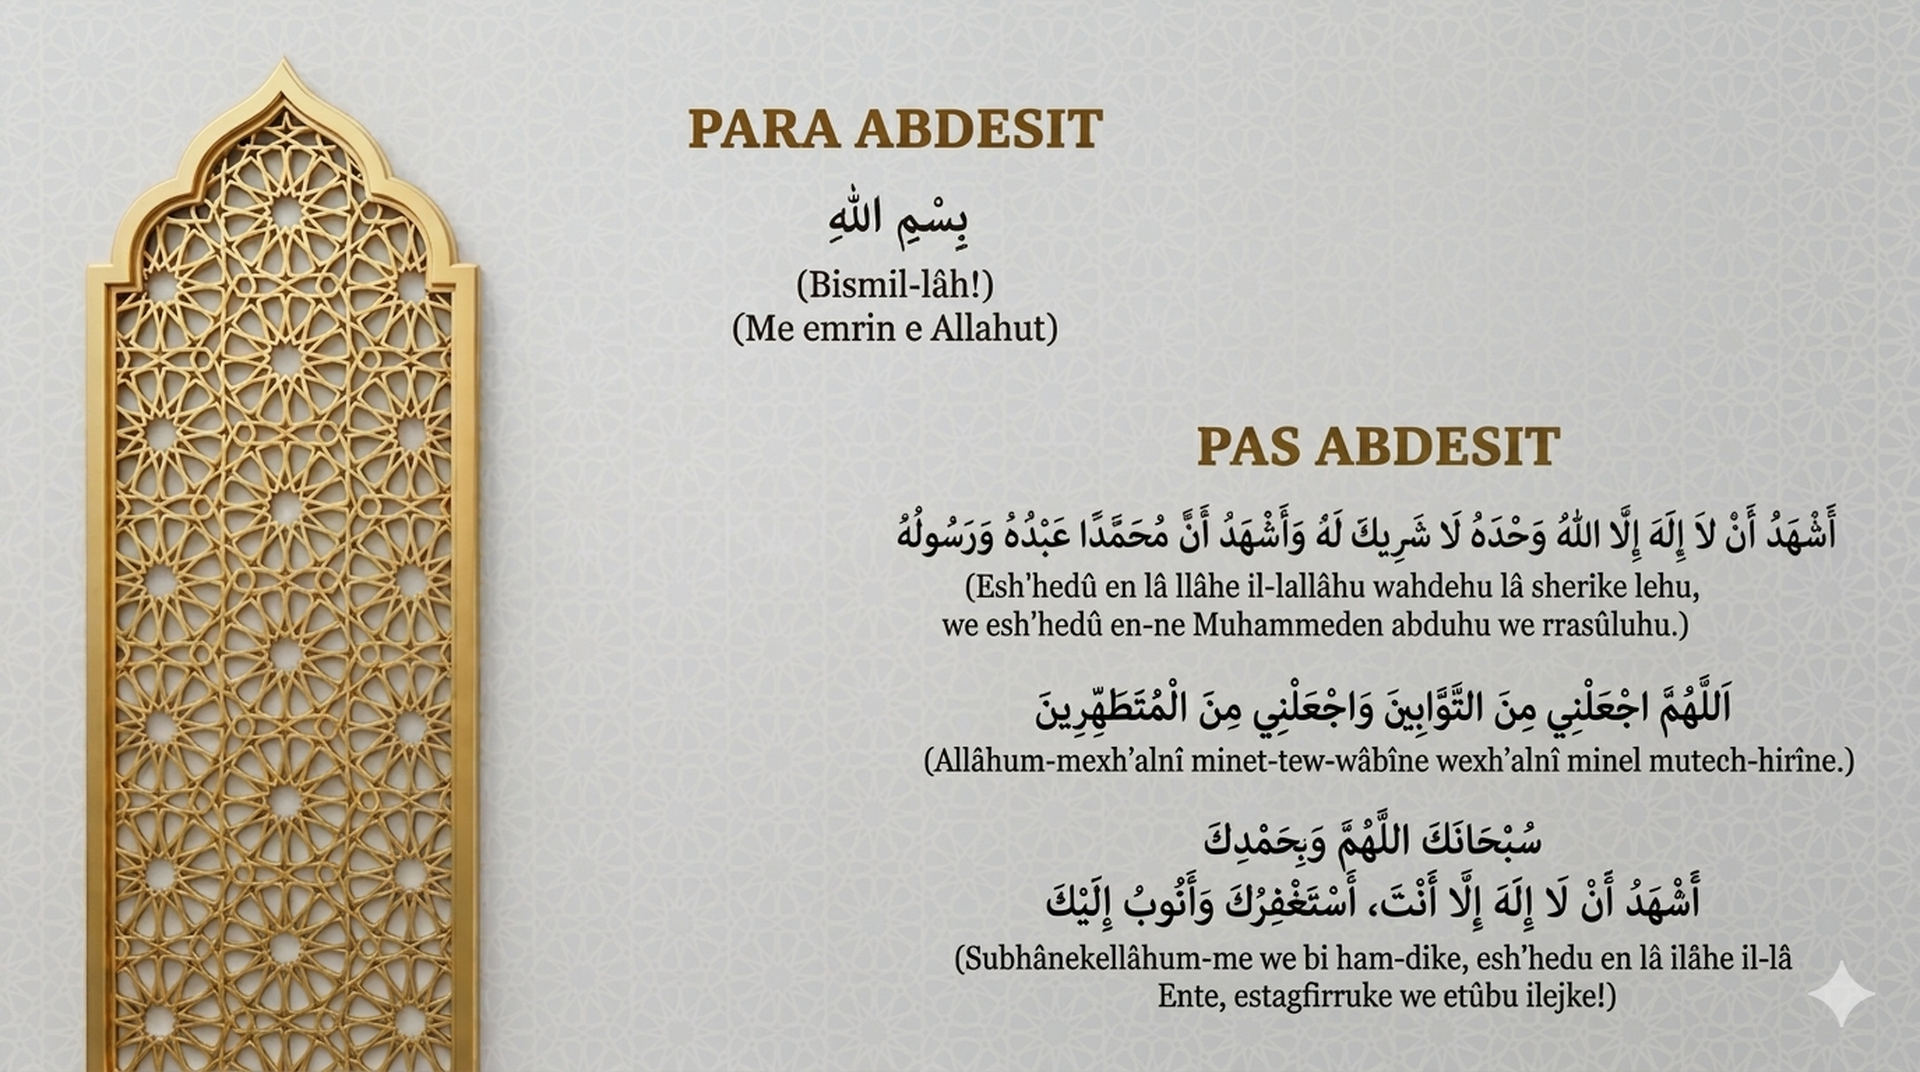 PARA ABDESIT
بِسْمِ اللهِ
(Bismil-lâh!)
(Me emrin e Allahut)
PAS ABDESIT
أَشْهَدُ أَنْ لاَ إِلَهَ إِلَّا اللهُ وَحْدَهُ لَا شَرِيكَ لَهُ وَأَشْهَدُ أَنَّ مُحَمَّدًا عَبْدُهُ وَرَسُولُهُ
(Esh’hedû en lâ llâhe il-lallâhu wahdehu lâ sherike lehu,
we esh’hedû en-ne Muhammeden abduhu we rrasûluhu.)
اَللَّهُمَّ اجْعَلْنِي مِنَ التَّوَّابِينَ وَاجْعَلْنِي مِنَ الْمُتَطَهِّرِينَ
(Allâhum-mexh’alnî minet-tew-wâbîne wexh’alnî minel mutech-hirîne.)
سُبْحَانَكَ اللَّهُمَّ وَبِحَمْدِكَ
أَشْهَدُ أَنْ لَا إِلَهَ إِلَّا أَنْتَ، أَسْتَغْفِرُكَ وَأَتُوبُ إِلَيْكَ
(Subhânekellâhum-me we bi ham-dike, esh’hedu en lâ ilâhe il-lâ
Ente, estagfirruke we etûbu ilejke!)